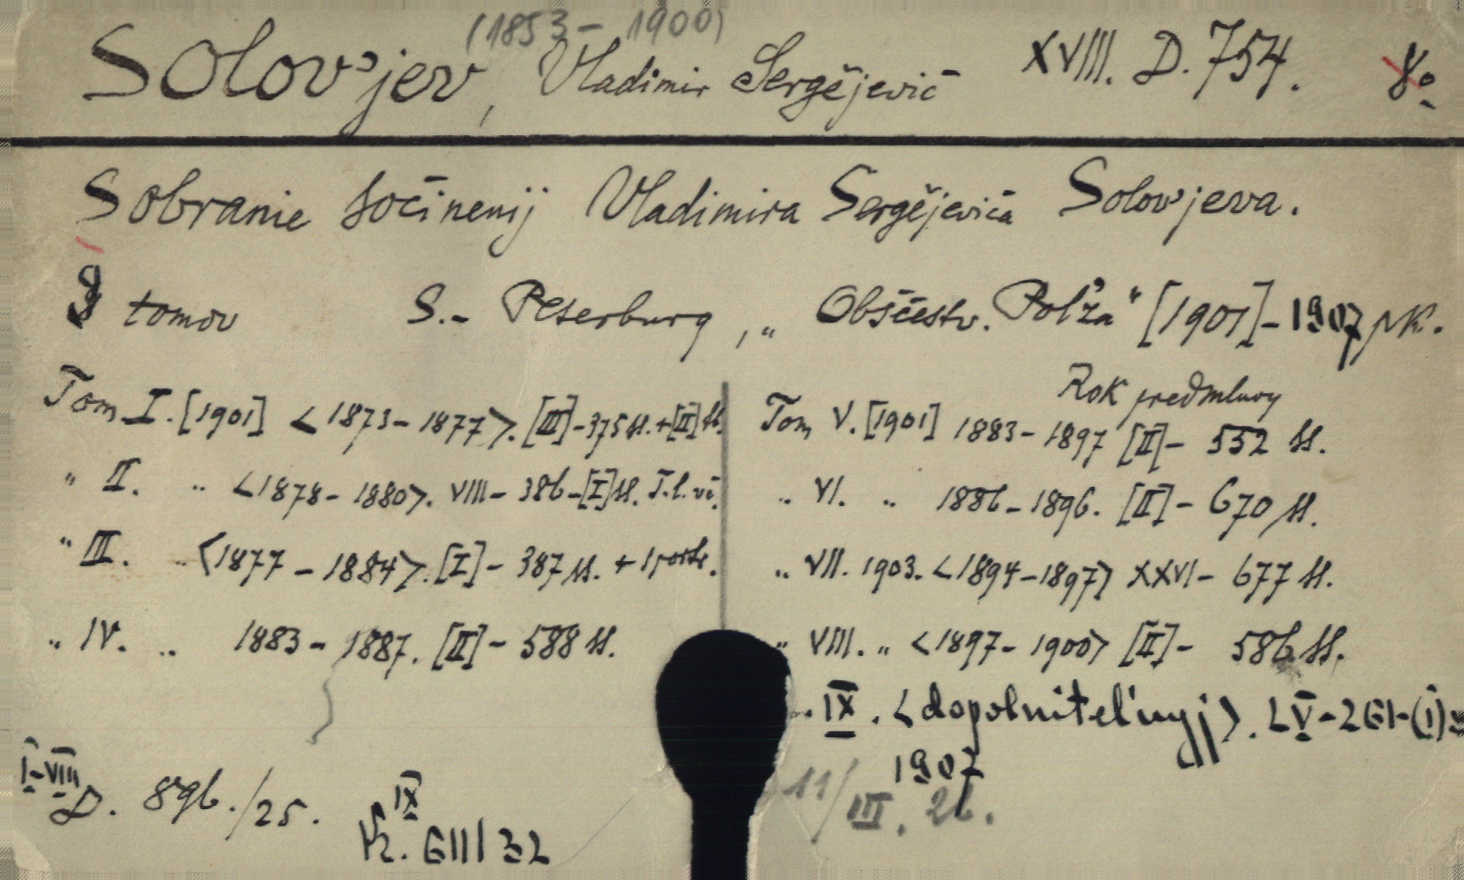 (1853-1900)
Solov'jev, Vladimir Sergějevič XVIII. D. 754. 8°
Sobranie sočinenij Vladimira Sergějeviča Solov'jeva.
tomov S.-Peterburg, „Obščestv. Pol'za" [1901]-1907
Rok předmluvy
Tom I. [1901] <1873-1877>. [III]-375 ss.+[II] ss.
" II. " <1878-1880>. VIII-386-[I] ss.
" III. " <1877-1884>. [I]-387 ss. + 1 portr.
" IV. " 1883-1887. [II]-588 ss.
Tom V. [1901] 1883-1897 [II]-552 ss.
" VI. " 1886-1896. [II]-670 ss.
" VII. 1903. <1894-1897> XXVI-677 ss.
" VIII. " <1897-1900> [II]-586 ss.
" IX. <dopolnitel'nyj>. LV-261-(I)
1907
I-VIII
D. 896./25.
IX
Kr. 6111/32
11/III. 26.